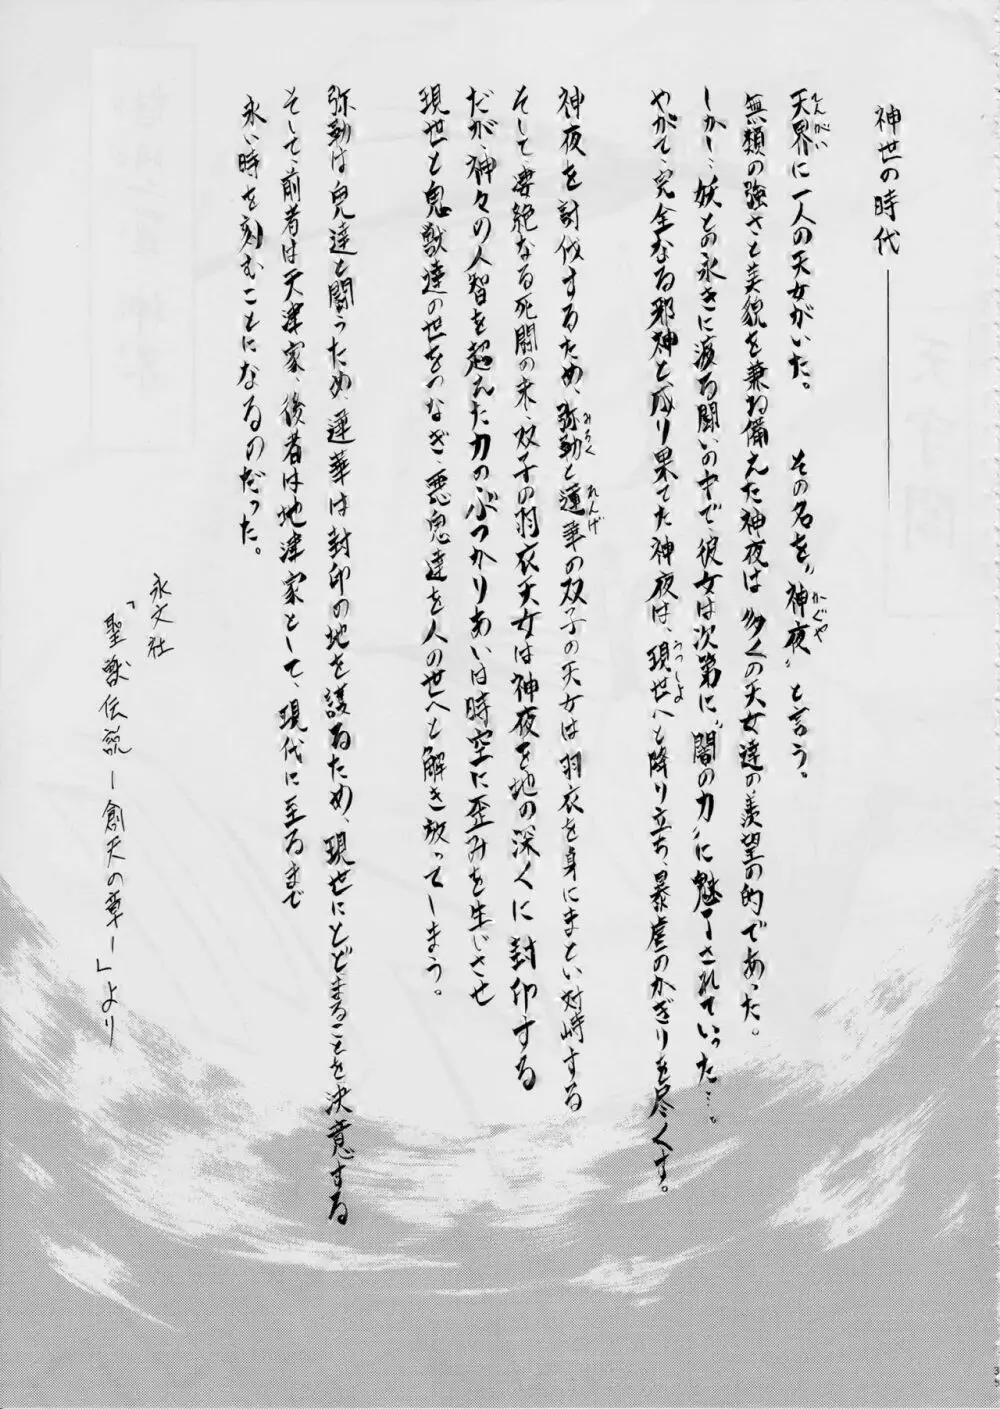 神世の時代――――
天界に一人の天女がいた。　その名を〝神夜〟と言う。
てんがい
かぐや
無類の強さと美貌を兼ね備えた神夜は多くの天女達の羨望の的であった。
しかし…妖との永きに渡る闘いの中で、彼女は次第に〝闇の力〟に魅了されていった…。
やがて、完全なる邪神と成り果てた神夜は、現世へと降り立ち、暴虐のかぎりを尽くす。
うつしよ
神夜を討伐するため、弥勒と蓮華の双子の天女は羽衣を身にまとい対峙する
みろく
れんげ
そして凄絶なる死闘の末、双子の羽衣天女は神夜を地の深くに封印する
だが、神々の人智を超えた力のぶつかりあいは時空に歪みを生じさせ
現世と鬼獣達の世をつなぎ、悪鬼達を人の世へと解き放ってしまう。
弥勒は鬼達と闘うため、蓮華は封印の地を護るため、現世にとどまることを決意する
そして、前者は天津家、後者は地津家として、現代に至るまで
永い時を刻むことになるのだった。
永文社
「聖獣伝説―創天の章―」より